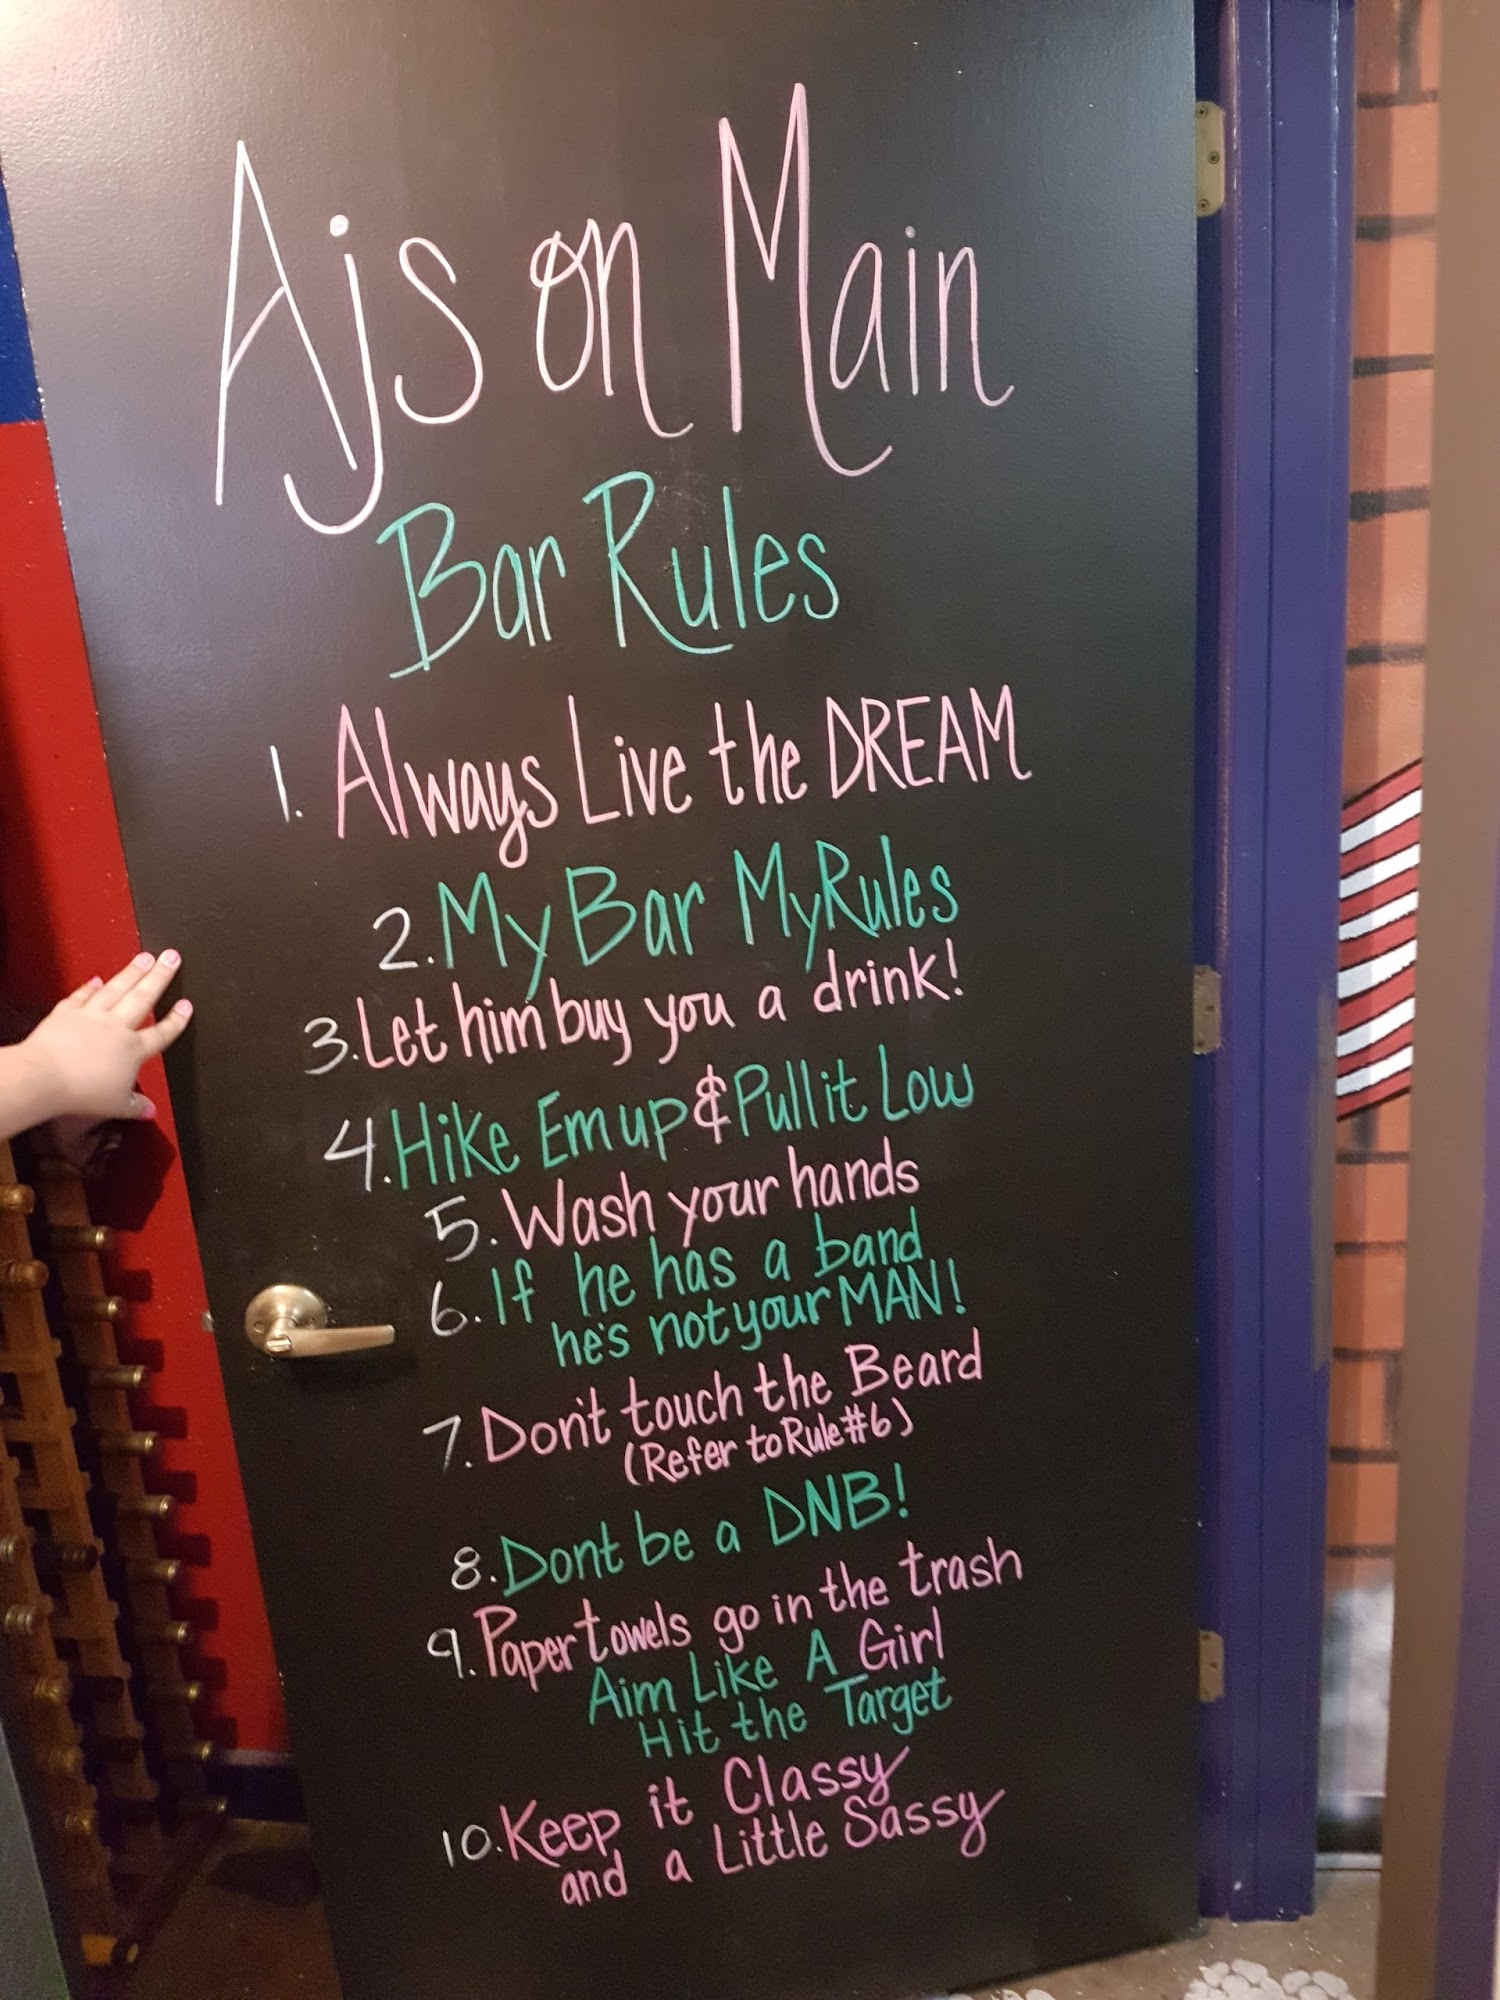 Ajs on Main
Bar Rules
1. Always Live the DREAM
2. My Bar My Rules
3. Let him buy you a drink!
4. Hike Em up & Pull it Low
5. Wash your hands
6. If he has a band
he's not your MAN!
7. Don't touch the Beard
(Refer to Rule #6)
8. Dont be a DNB!
9. Paper towels go in the trash
Aim Like A Girl
Hit the Target
10. Keep it Classy
and a Little Sassy